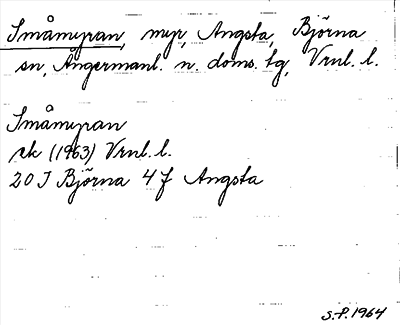 Småmyran, myr, Angsta, Björna
sn, Ångermanl. n. doms. lg, Vrnl. l.
Småmyran
ek (1963) Vrnl. l.
20 J Björna 4 f Angsta
S.P. 1964